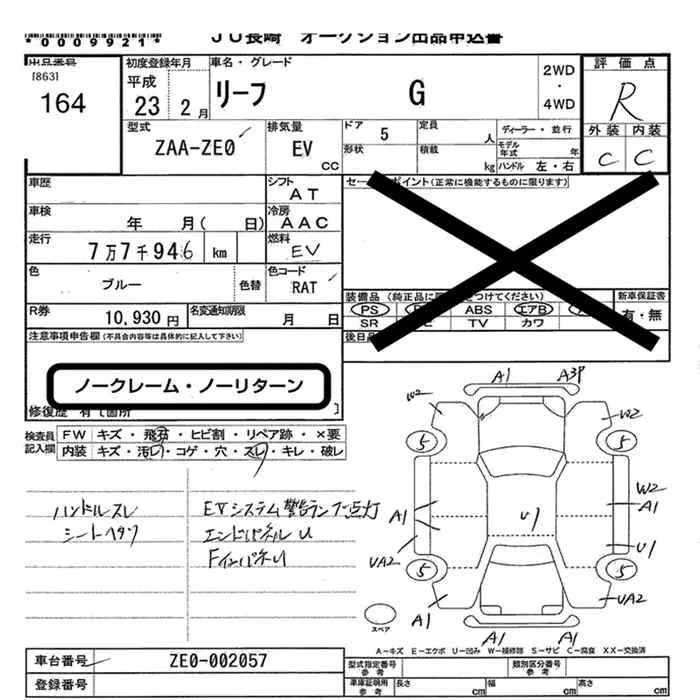 *0009921* JU長崎 オークション出品申込書
出品番号
[863]
164
初度登録年月
平成
23 2月
車名・グレード
リーフ G
2WD
・
4WD
評価点
R
外装 内装
C C
型式
ZAA-ZE0
排気量
EV
CC
ドア 5
形状
定員 人
積載 kg
ディーラー・並行
モデル年式 年
ハンドル 左・右
車歴
シフト
AT
セー ポイント(正常に機能するものに限ります)
車検
年 月( 日)
冷房
AAC
走行
7万7千946 km
燃料
EV
色
ブルー
色替
色コード
RAT
装備品 (純正品に つけてください)
新車保証書
PS ABS エアB
有・無
SR TV カワ
R券
10,930円
名変通知期限
月 日
後日
注意事項申告欄(不具合内容等は具体的に記入して下さい)
ノークレーム・ノーリターン
修復歴 有 箇所
検査員
記入欄
FW キズ・飛石・ヒビ割・リペア跡・×要
内装 キズ・汚レ・コゲ・穴・スレ・キレ・破レ
ハンドルスレ
シートヘタリ
EVシステム警告ランプ点灯
エンドパネルU
FインパネU
A1 A3P
W2 W2
5 5
W2
A1 A1
U1
U1
UA2
5 5
UA2
A1
A1 A1
スペア
A-キズ E-エクボ U-凹み W-補修跡 S-サビ C-腐食 XX-交換済
車台番号 ZE0-002057
登録番号
型式指定番号
参考
類別区分番号
参考
車庫証明用
参考
長さ cm 幅 cm 高さ cm